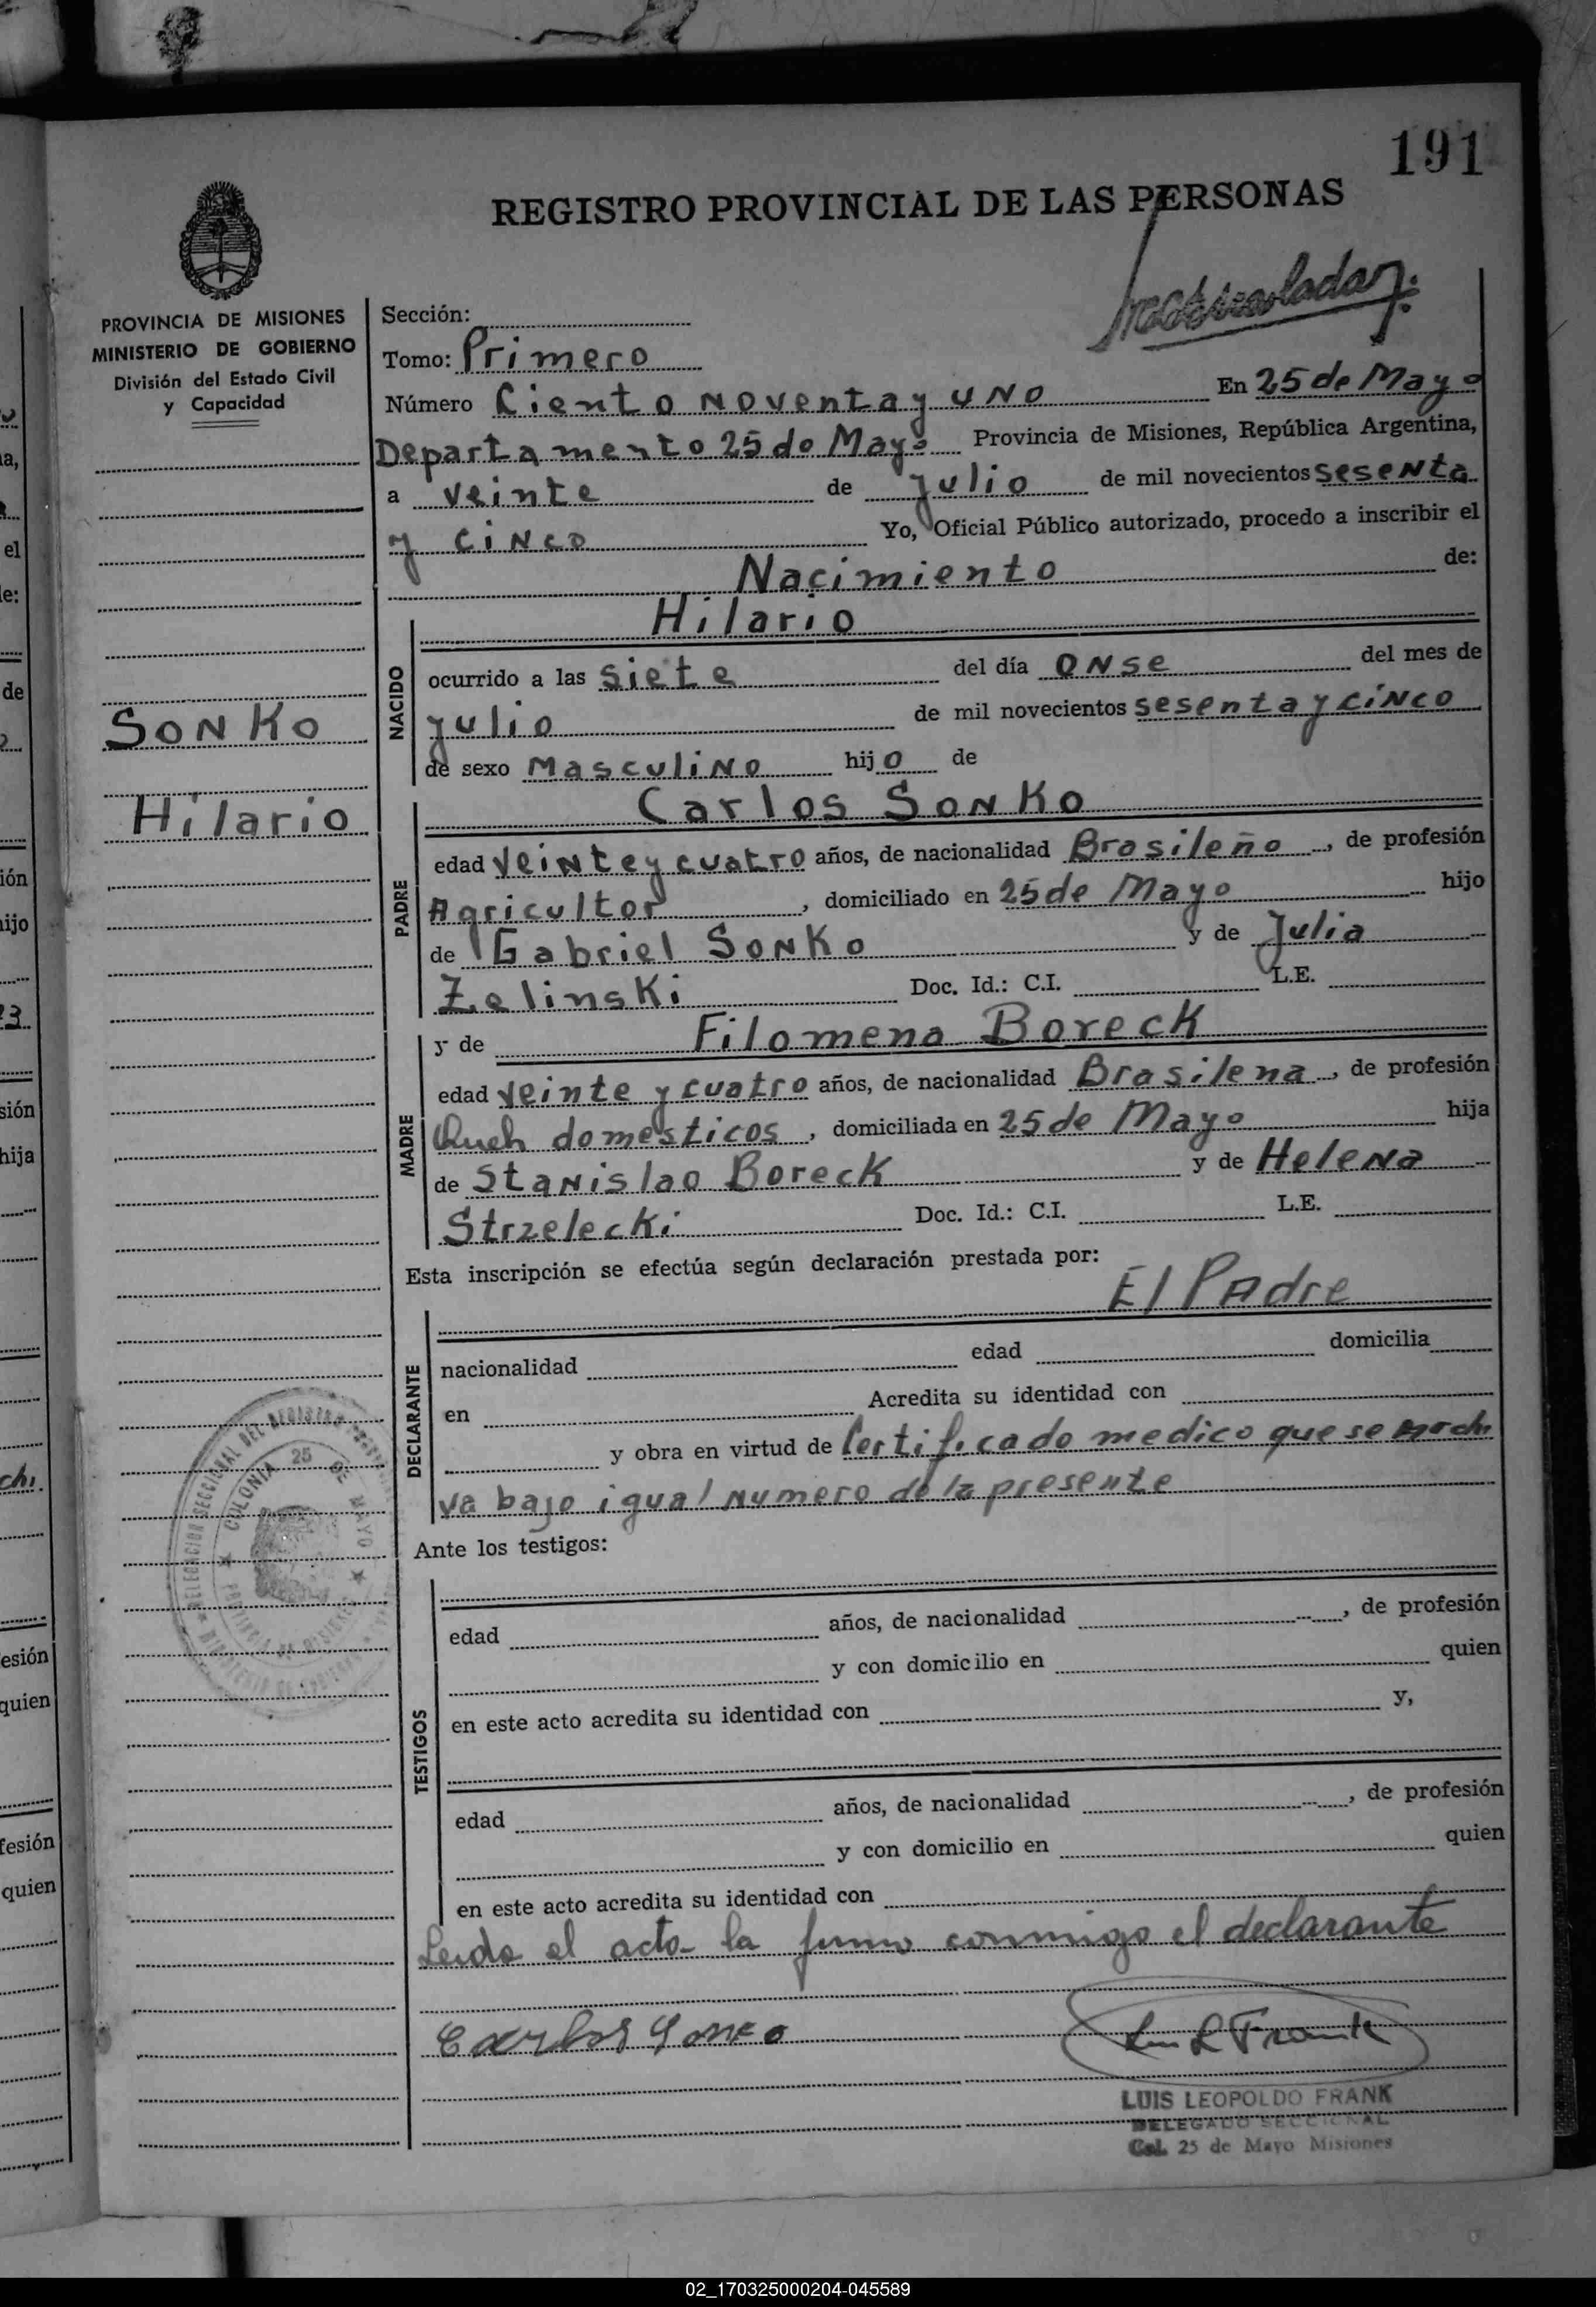 191
REGISTRO PROVINCIAL DE LAS PERSONAS
PROVINCIA DE MISIONES
MINISTERIO DE GOBIERNO
División del Estado Civil
y Capacidad
SONKo
Hilario
Sección:
Tomo: Primero
Número Ciento Noventa y uno En 25 de Mayo
Departamento 25 de Mayo Provincia de Misiones, República Argentina,
a veinte de julio de mil novecientos sesenta
y cinco Yo, Oficial Público autorizado, procedo a inscribir el
Nacimiento de:
NACIDO
Hilario
ocurrido a las siete del día onse del mes de
julio de mil novecientos sesenta y cinco
de sexo Masculino hijo de
PADRE
Carlos Sonko
edad veinte y cuatro años, de nacionalidad Brasileño, de profesión
Agricultor, domiciliado en 25 de Mayo hijo
de Gabriel Sonko y de Julia
Zelinski Doc. Id.: C.I. L.E.
MADRE
y de Filomena Boreck
edad veinte y cuatro años, de nacionalidad Brasilena, de profesión
domesticos, domiciliada en 25 de Mayo hija
de Stanislao Boreck y de Helena
Strzelecki Doc. Id.: C.I. L.E.
Esta inscripción se efectúa según declaración prestada por:
El Padre
DECLARANTE
nacionalidad edad domicilia
en Acredita su identidad con
y obra en virtud de Certificado medico que se archi
va bajo igual numero de la presente
Ante los testigos:
TESTIGOS
edad años, de nacionalidad , de profesión
y con domicilio en quien
en este acto acredita su identidad con y,
edad años, de nacionalidad , de profesión
y con domicilio en quien
en este acto acredita su identidad con
Leida el acta la firma conmigo el declarante
Carlos Sonko
Luis L Frank
LUIS LEOPOLDO FRANK
DELEGADO SECCIONAL
Col. 25 de Mayo Misiones
COLONIA 25 DE MAYO
PROVINCIA DE MISIONES
02_170325000204-045589